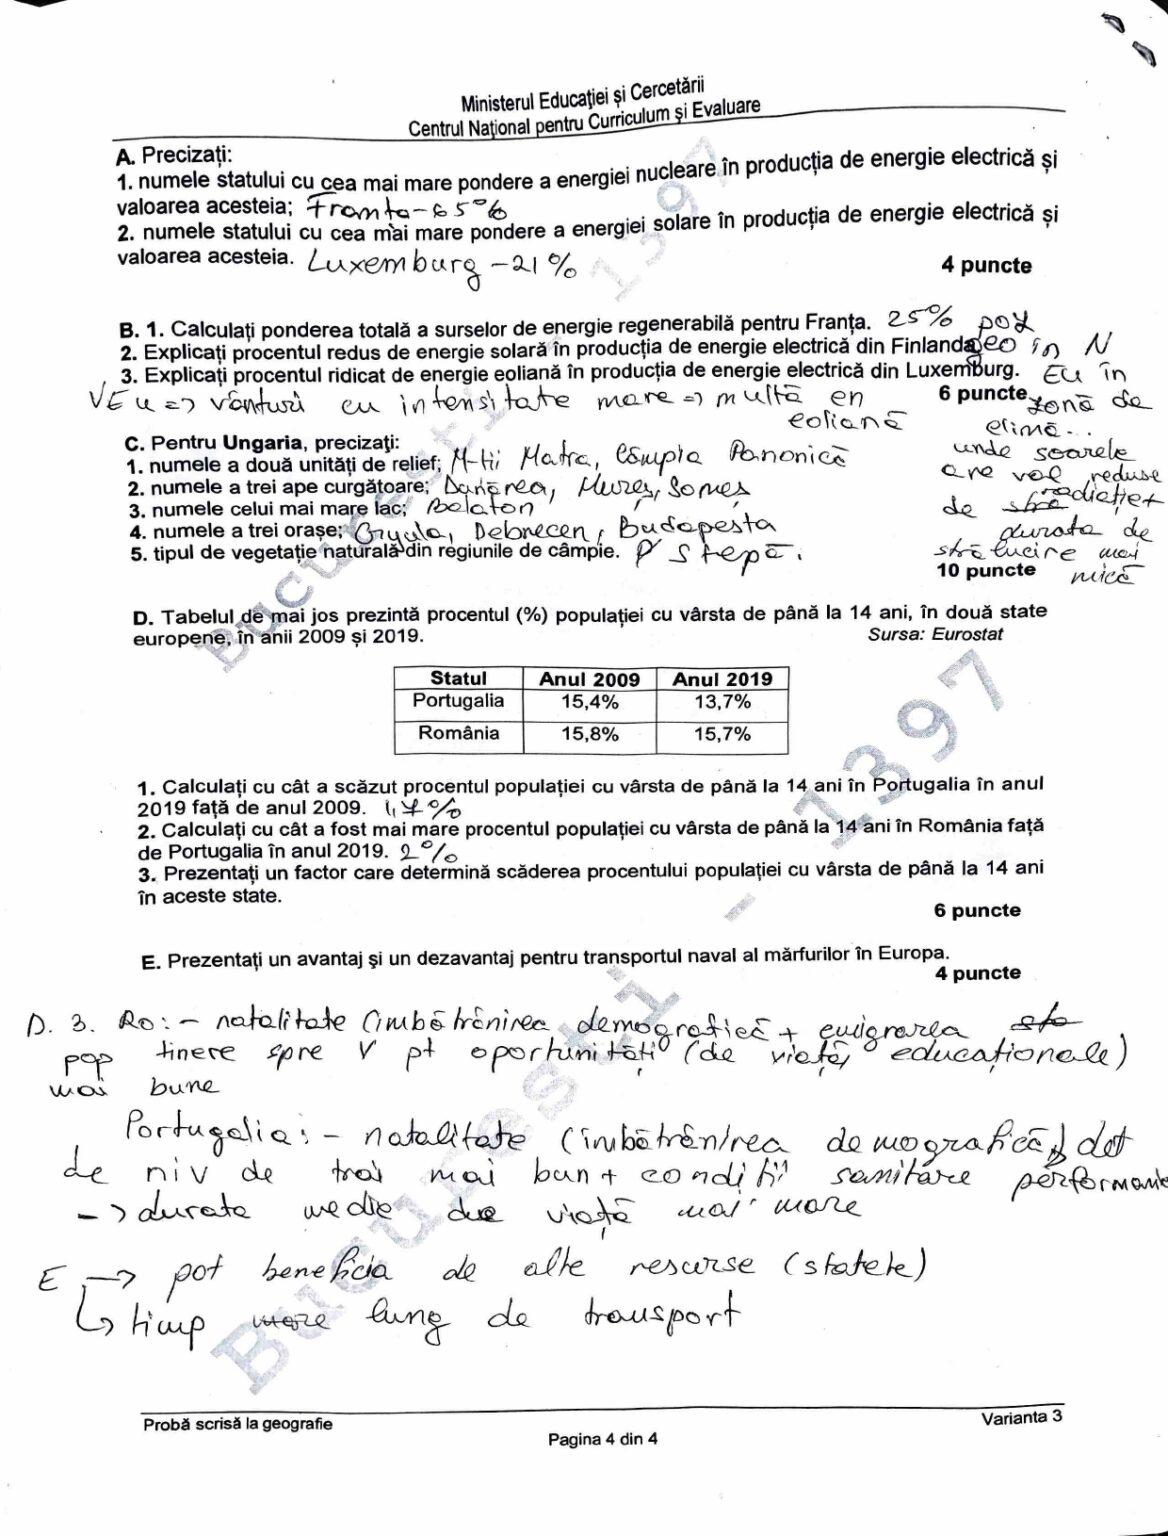 Ministerul Educaţiei și Cercetării
Centrul Naţional pentru Curriculum și Evaluare
A. Precizaţi:
1. numele statului cu cea mai mare pondere a energiei nucleare în producţia de energie electrică şi
valoarea acesteia; Franta - 65%
2. numele statului cu cea mai mare pondere a energiei solare în producţia de energie electrică şi
valoarea acesteia. Luxemburg - 21%
4 puncte
B. 1. Calculaţi ponderea totală a surselor de energie regenerabilă pentru Franţa. 25%
2. Explicaţi procentul redus de energie solară în producţia de energie electrică din Finlanda.
3. Explicaţi procentul ridicat de energie eoliană în producţia de energie electrică din Luxemburg.
6 puncte
poz
geo în N
EU în
zonă de
climă...
unde soarele
are val reduse
de stră radiației +
durata de
strălucire mai
mică
VEu => vânturi cu intensitate mare => multă en
eoliană
C. Pentru Ungaria, precizaţi:
1. numele a două unităţi de relief; M-ții Matra, Câmpia Panonică
2. numele a trei ape curgătoare; Dunărea, Mureș, Someș
3. numele celui mai mare lac; Balaton
4. numele a trei oraşe; Gyula, Debrecen, Budapesta
5. tipul de vegetaţie naturală din regiunile de câmpie. stepă.
10 puncte
D. Tabelul de mai jos prezintă procentul (%) populaţiei cu vârsta de până la 14 ani, în două state
europene, în anii 2009 și 2019.
Sursa: Eurostat
Statul Anul 2009 Anul 2019
Portugalia 15,4% 13,7%
România 15,8% 15,7%
1. Calculaţi cu cât a scăzut procentul populaţiei cu vârsta de până la 14 ani în Portugalia în anul
2019 faţă de anul 2009. 1,7%
2. Calculaţi cu cât a fost mai mare procentul populaţiei cu vârsta de până la 14 ani în România faţă
de Portugalia în anul 2019. 2%
3. Prezentaţi un factor care determină scăderea procentului populaţiei cu vârsta de până la 14 ani
în aceste state.
6 puncte
E. Prezentaţi un avantaj şi un dezavantaj pentru transportul naval al mărfurilor în Europa.
4 puncte
D. 3. Ro: - natalitate (îmbătrânirea demografică + emigrarea sta
pop tinere spre V pt oportunități (de viață, educaționale)
mai bune
Portugalia: - natalitate (îmbătrânirea demografică) dat
de niv de trai mai bun + condiții sanitare performante
-> durata medie de viață mai mare
E -> pot beneficia de alte rescurse (statele)
↳ timp mare lung de transport
Probă scrisă la geografie
Varianta 3
Pagina 4 din 4
București - 1397
București - 1397